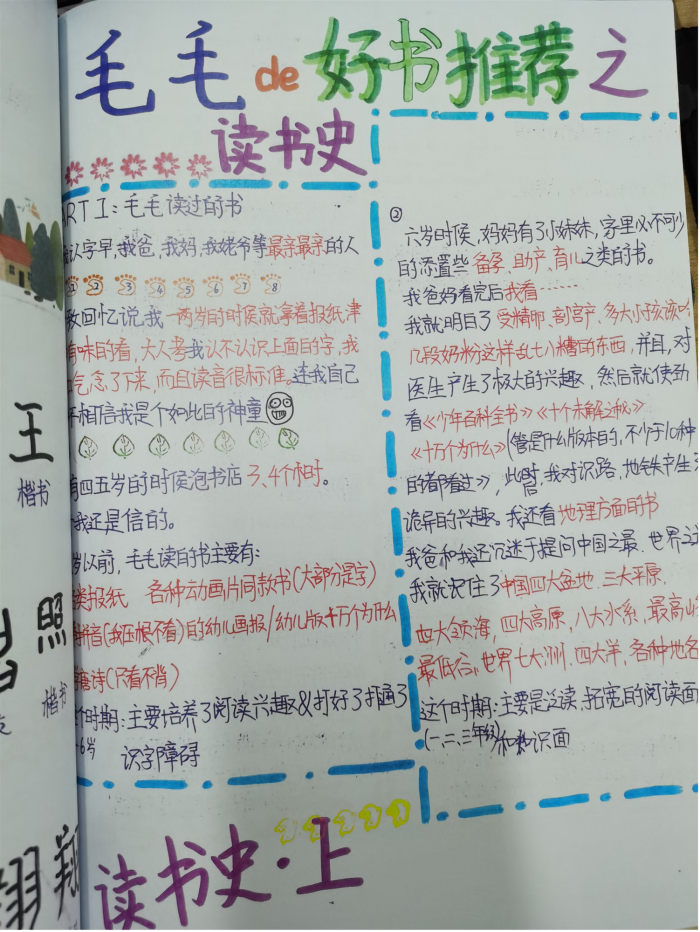 毛毛de好书推荐之
读书史
RT1:毛毛读过的书
认字早,我爸,我妈,我姥爷等最亲最亲的人
1 2 3 4 5 6 7 8
回忆说,我一两岁的时候就拿着报纸津
有味的看,大人考我认不认识上面的字,我
气念了下来,而且读音很标准。连我自己
不相信我是个如此的神童
有四五岁的时候泡书店3、4个小时。
我还是信的。
岁以前,毛毛读的书主要有:
类报纸 各种动画片同款书(大部分是字)
拼音(我压根不看)的幼儿画报/幼儿版十万个为什么
唐诗(只看不背)
个时期:主要培养了阅读兴趣&打好了打通了
-6岁 识字障碍
读书史·上
②
六岁时候,妈妈有了小妹妹,家里必不可少
的添置些备孕、助产、育儿之类的书。
我爸妈看完后我看……
我就明白了受精卵、剖宫产、多大小孩该吃
几段奶粉这样乱七八糟的东西,并且,对
医生产生了极大的兴趣,然后就使劲
看《少年百科全书》《十个未解之秘》
《十万个为什么》(管是什么版本的,不少于10种
的都看过》,此时后,我对识路、地铁产生了
诡异的兴趣。我还看地理方面的书
我爸和我还沉迷于提问中国之最、世界之
我就记住了中国四大盆地、三大平原、
四大领海,四大高原,八大水系,最高山
最低谷,世界七大洲、四大洋、各种地名
这个时期:主要是泛读、拓宽的阅读面
(一、二、三年级)和知识面
王
楷书
照
楷书
翔